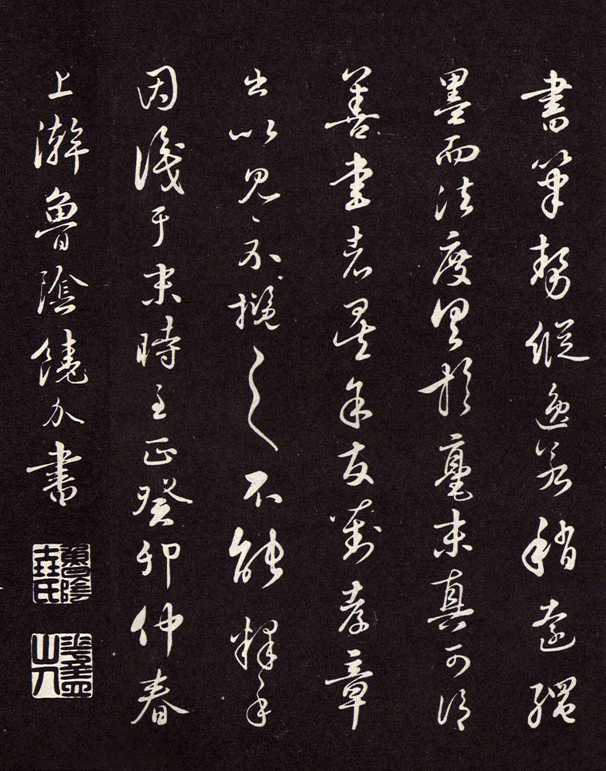 書筆勢縱逸若稍遠繩
墨而法度具於毫末真可謂
善書者矣余友劉孝章
出以見示攬之不能釋手
因識于末時至正癸卯仲春
上澣魯陰饒介書